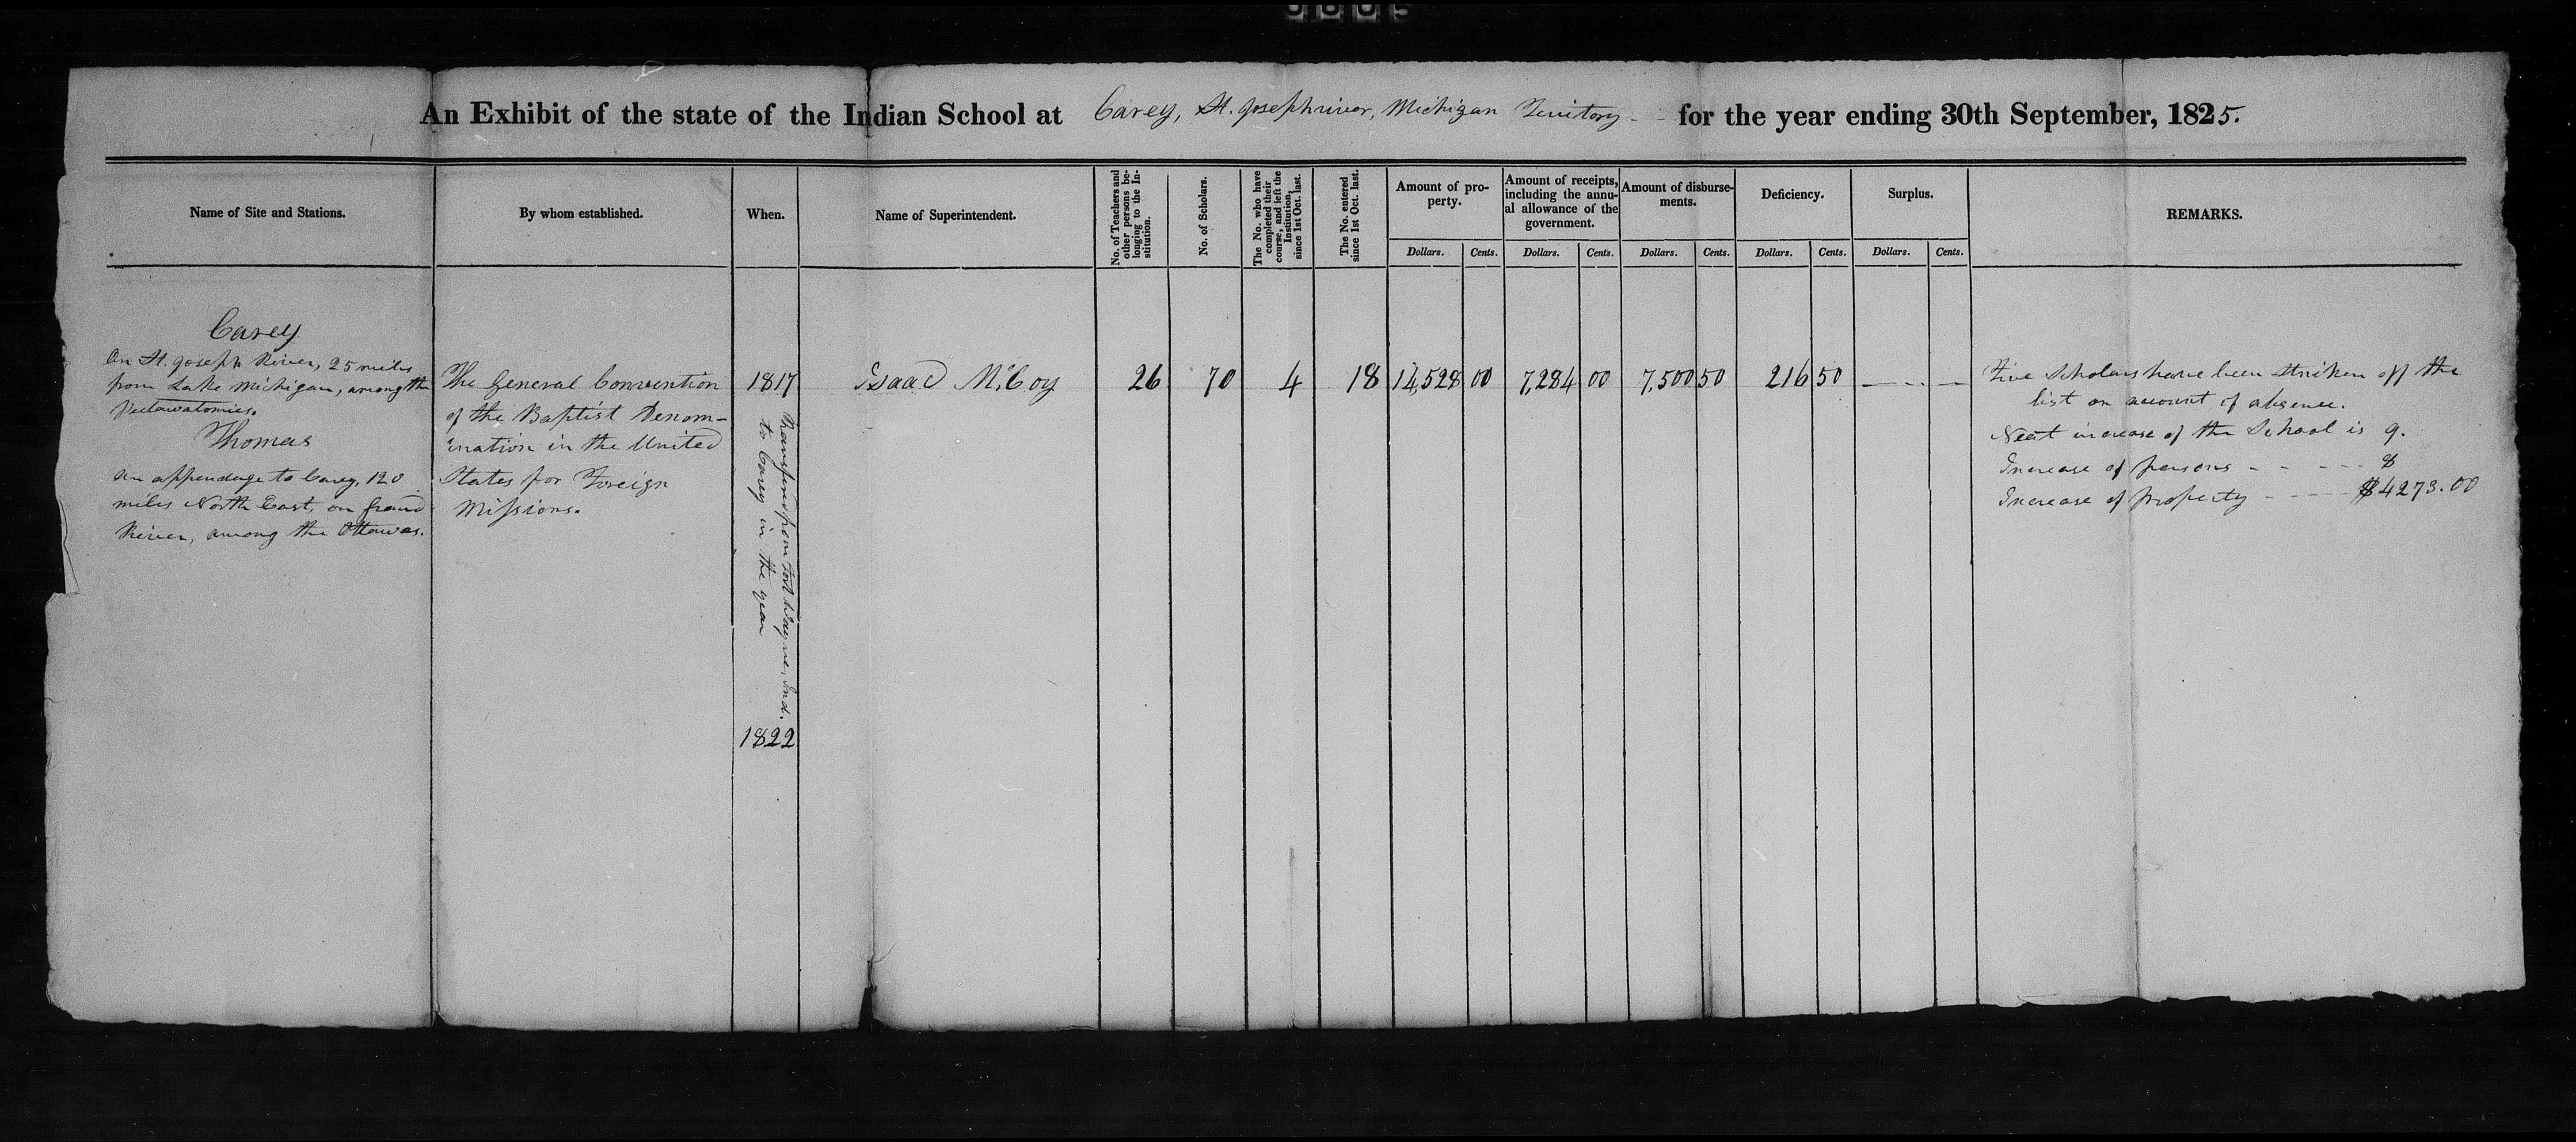 An Exhibit of the state of the Indian School at Carey, St. Joseph river, Michigan Territory - - for the year ending 30th September, 1825.
Name of Site and Stations.
By whom established.
When.
Name of Superintendent.
No. of Teachers and
other persons be-
longing to the In-
stitution.
No. of Scholars.
The No. who have
completed their
course, and left the
Institution,
since 1st Oct. last.
The No. entered
since 1st Oct. last.
Amount of pro-
perty.
Amount of receipts,
including the annu-
al allowance of the
government.
Amount of disburse-
ments.
Deficiency.
Surplus.
REMARKS.
Dollars. Cents. Dollars. Cents. Dollars. Cents. Dollars. Cents. Dollars. Cents.
Carey
On St. Joseph River, 25 miles
from Lake Michigan, among the
Putawatomies.
Thomas
an appendage to Carey, 120
miles North East, on Grand
River, among the Ottawas.
The General Convention
of the Baptist Denom-
ination in the United
States for Foreign
Missions.
1817
Transferred from Fort Wayne, Ind.
to Carey in the year
1822
Isaac McCoy
26
70
4
18
14,528 00
7,284 00
7,500 50
216 50
Five Scholars have been stricken off the
list on account of absence.
Neat increase of the School is 9.
Increase of persons - - - - - 8
Increase of property - - - - - $4273.00